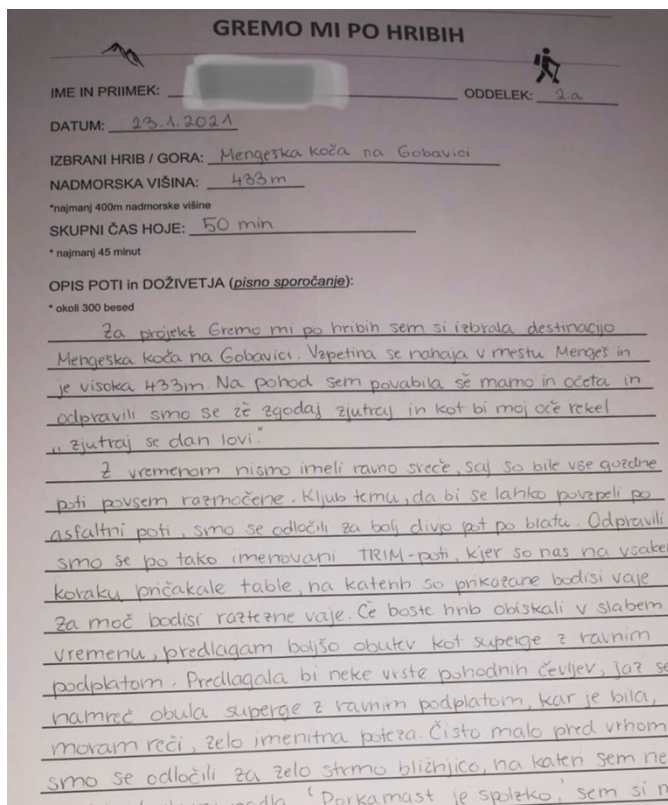 GREMO MI PO HRIBIH
IME IN PRIIMEK:
ODDELEK: 2.a
DATUM: 23.1.2021
IZBRANI HRIB / GORA: Mengeška koča na Gobavici
NADMORSKA VIŠINA: 433 m
*najmanj 400m nadmorske višine
SKUPNI ČAS HOJE: 50 min
* najmanj 45 minut
OPIS POTI in DOŽIVETJA (pisno sporočanje):
* okoli 300 besed
Za projekt Gremo mi po hribih sem si izbrala destinacijo
Mengeška koča na Gobavici. Vzpetina se nahaja v mestu Mengeš in
je visoka 433m. Na pohod sem povabila še mamo in očeta in
odpravili smo se že zgodaj zjutraj in kot bi moj oče rekel
„zjutraj se dan lovi."
Z vremenom nismo imeli ravno sreče, saj so bile vse gozdne
poti povsem razmočene. Kljub temu, da bi se lahko povzpeli po
asfaltni poti, smo se odločili za bolj divjo pot po blatu. Odpravili
smo se po tako imenovani TRIM-poti, kjer so nas na vsakem
koraku pričakale table, na katerih so prikazane bodisi vaje
za moč bodisi raztezne vaje. Če boste hrib obiskali v slabem
vremenu, predlagam boljšo obutev kot superge z ravnim
podplatom. Predlagala bi neke vrste pohodnih čevljev, jaz se
namreč obula superge z ravnim podplatom, kar je bila,
moram reči, zelo imenitna poteza. Čisto malo pred vrhom
smo se odločili za zelo strmo bližnjico, na kateri sem ne
'Porkamast je spolzko,' sem si